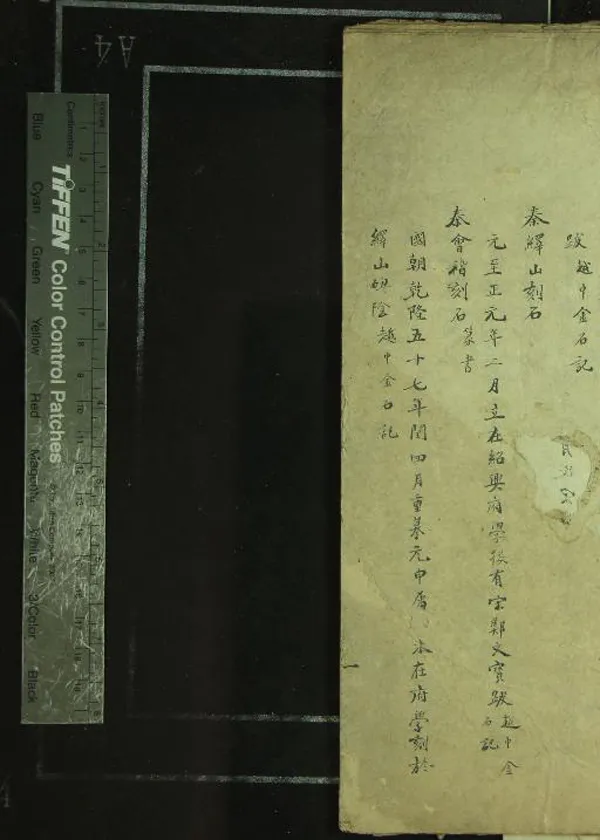 跋越中金石記
秦繹山刻石
元至正元年二月立在紹興府學後有宋鄭文寳跋越中金石記
秦會稽刻石篆書
國朝乾隆五十七年閏四月重摹元申屠 本在府學刻於
繹山碑陰越中金石記
A4
Centimetres
TIFFEN Color Control Patches
Blue Cyan Green Yellow Red Magenta White 3/Color Black